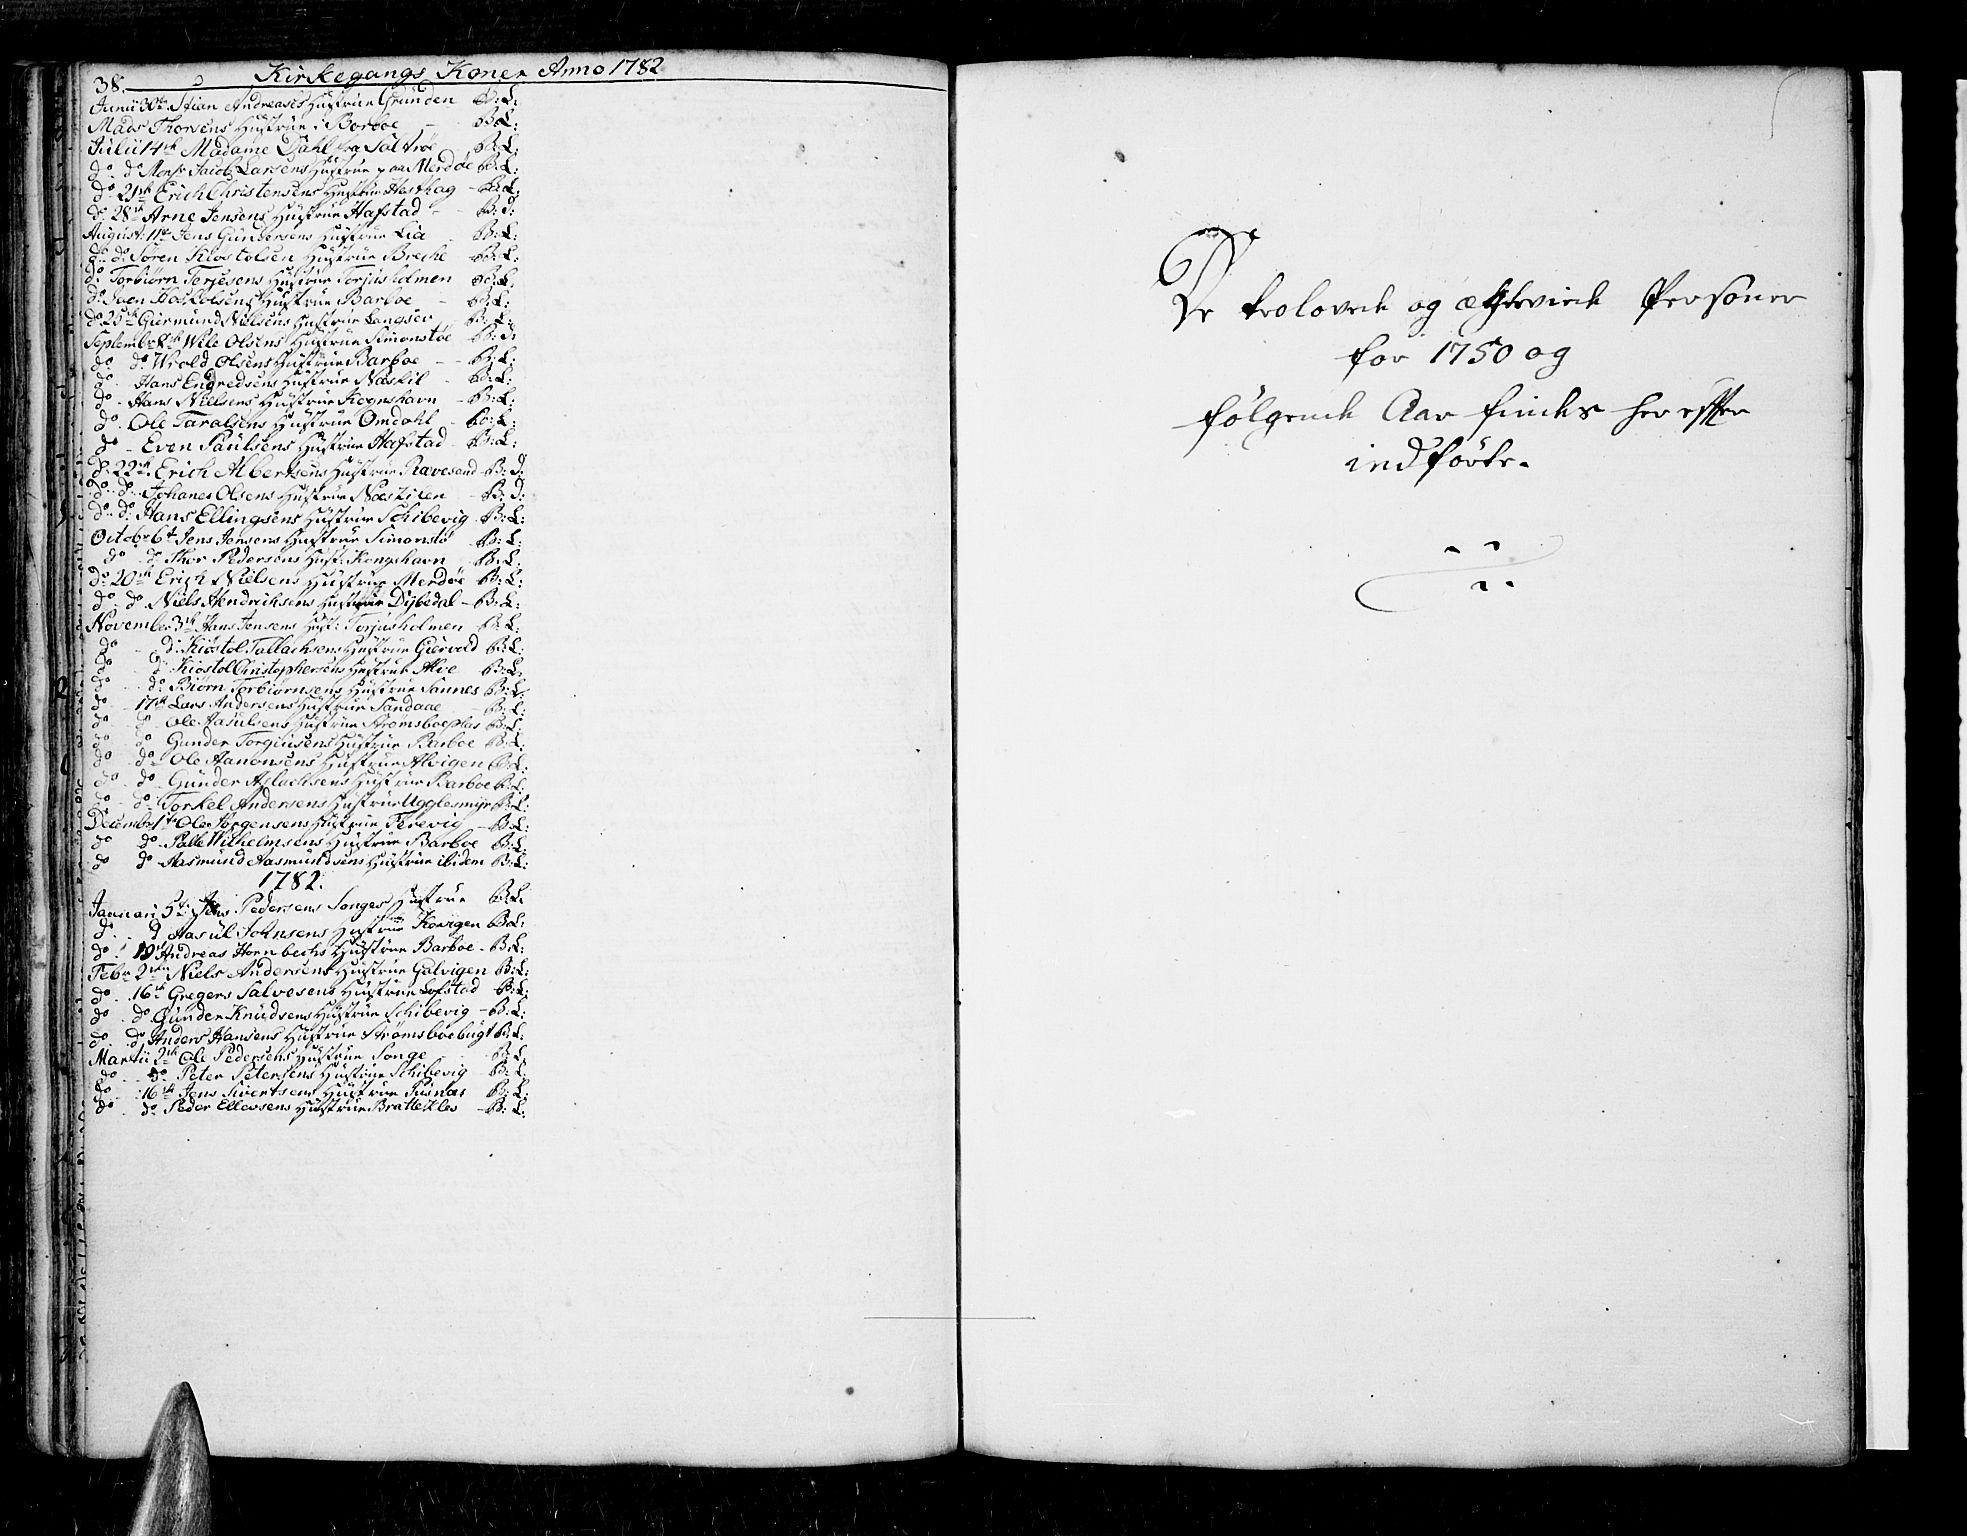 38. Kirkegangs Koner Anno 1782
Junii 30te Stian Andreases Hustrue Grunden B: L:
Mads Thorsens Hustrue i Barboe - B: L:
Julii 14de Madame Dahl fra Saltrøe B: L:
do do Monsr Jacob Larsens Hustrue paa Merdøe B: L:
do 21de Erich Christensens Hustrue Hasthag - B: L:
do 28de Arne Jensens Hustrue Hafstad - B: d:
August: 11te Jens Gundersens Hustrue Lia - B: L:
do do Søren Kiostolsen Hustrue Breche B: L:
do Torbiørn Terjesens Hustrue Torjusholmen B: L:
do Hustrue Barboe - B: L:
do 25de Giermund Nielsens Hustrue Langsev - B: L:
Septembr 8de Wile Olsens Hustrue Simonstøe B: d:
do do Wrold Olsens Hustrue Barboe - B: L:
do - Hans Engredsens Hustrue Næskil - B: L:
do - Hans Nielsens Hustrue Kognshavn - B: L:
do - Ole Taralsens Hustrue Omdahl - B: L:
do - Even Paulsens Hustrue Hafstad - B: L:
do 22de Erich Albertsens Hustrue Rævesand - B: d:
do do Johanes Olsens Hustrue Næskilen - B: d:
do do Hans Ellingsens Hustrue Schibevig - B: L:
Octobr 6te Jens Jensens Hustrue Simonstø B: L:
do do Thor Pedersens Hust: Kongshavn - B: L:
do 20de Erich Nielsens Hustrue Merdøe B: L:
do do Niels Hendrichsens Hustrue Dybedal - B: L:
November 3de Hans Jensens Hust: Torjusholmen - B: L:
do - do Kiøstol Tallachsens Hustrue Giervold B: L:
do do Kiøstol Christophersens Hustrue Alve - B: L:
do - do Biørn Torbiørnsens Hustrue Sannes B: L:
do 17de Lars Andersens Hustrue Sandaae - B: L:
do do Ole Aasulsens Hustrue Strømsboeplas B: L:
do do Gunder Torgiusens Hustrue Barboe B: L:
do do Ole Aanonsens Hustrue Alvigen B: L:
do do Gunder Aslachsens Hustrue Barboe B: L:
do do Torkel Andersens Hustrue Ugglesmyr B: L:
December 1te Ole Jørgensens Hustrue Terevig - B: L:
do do Palle Wilhelmsens Hustrue Barboe B: L:
do do Aasmund Aasmundsens Hustrue ibidem B: L:
1782.
Januari 5te Jens Pedersens Songes Hustrue B: L:
do d Aasul Johnsens Hustrue Kovigen B: L:
do 19 Andreas Hornbechs Hustrue Barboe - B: L:
Febr 2den Niels Andersens Hustrue Galvigen B: L:
do 16de Gregers Salvesens Hustrue Lofstad - B: L:
do do Gunder Knudsens Hustrue Schibevig - B: L:
do do Anders Hansens Hustrue Strømsboebugt B: L:
Martii 2de Ole Pedersens Hustrue Songe B: L:
do do Peter Petersens Hustrue Schibevig - B: L:
do 16de Jens Sivertsens Hustrue Pusnæs B: L:
do do Peder Ellevsens Hustrue Bratteklev - B: L:
De trolovede og ægteviede Personer
for 1750 og
følgende Aar findes her efter
indførte.